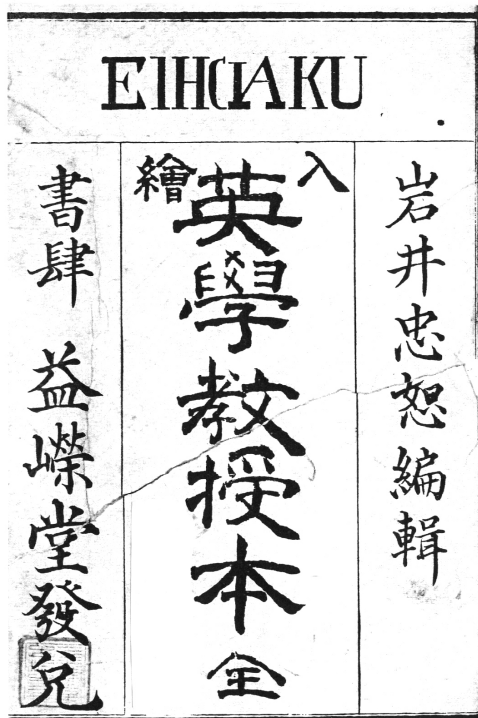 EIHGAKU
岩井忠恕編輯
入繪
英學教授本全
書肆 益嶸堂發兌